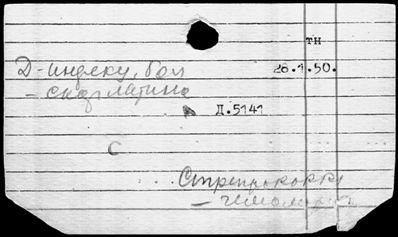 тн
Д-индексу, бол
26.1.50.
- скарлатина
Д.5141
С
Стрептококк
- гемолит